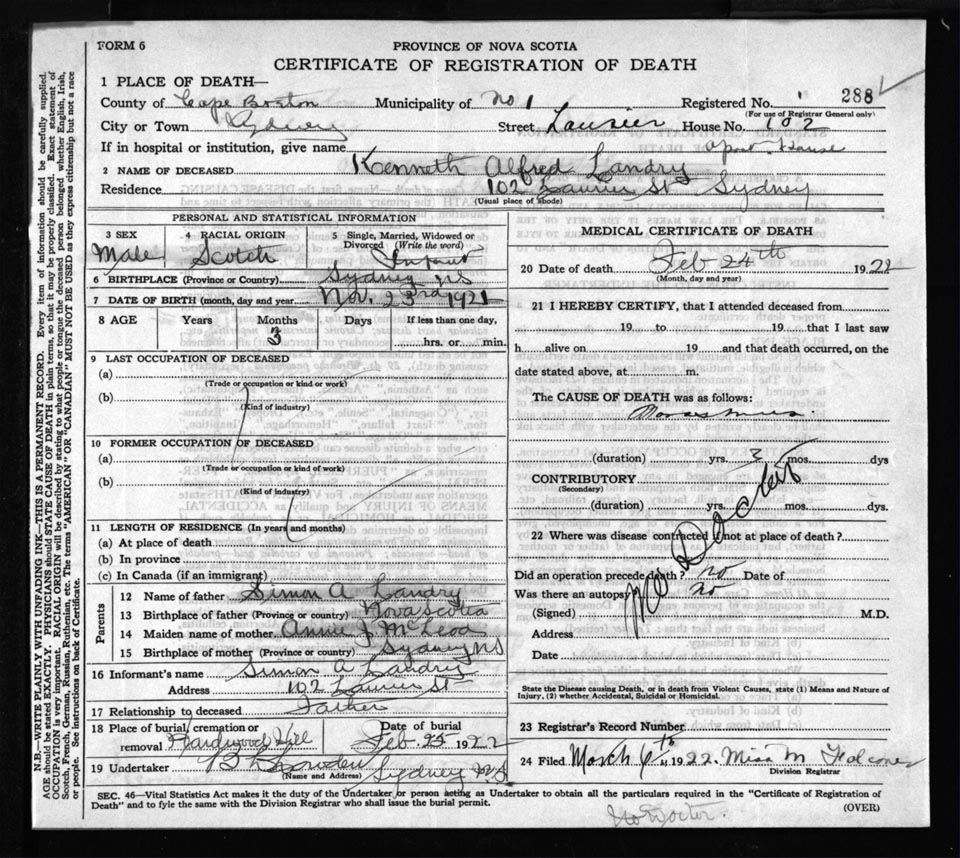 FORM 6
PROVINCE OF NOVA SCOTIA
CERTIFICATE OF REGISTRATION OF DEATH
1 PLACE OF DEATH—
County of Cape Breton Municipality of No 1 Registered No. 288
(For use of Registrar General only)
City or Town Sydney Street Laurier House No. 102
If in hospital or institution, give name Apart House
2 NAME OF DECEASED Kenneth Alfred Landry
Residence 102 Laurier St Sydney
(Usual place of abode)
PERSONAL AND STATISTICAL INFORMATION
3 SEX Male
4 RACIAL ORIGIN Scotch
5 Single, Married, Widowed or Divorced (Write the word) Infant
6 BIRTHPLACE (Province or Country) Sydney NS
7 DATE OF BIRTH (month, day and year) Nov. 23rd 1921
8 AGE Years Months 3 Days If less than one day, hrs. or min.
9 LAST OCCUPATION OF DECEASED
(a)
(Trade or occupation or kind or work)
(b)
(Kind of industry)
10 FORMER OCCUPATION OF DECEASED
(a)
(Trade or occupation or kind of work)
(b)
(Kind of industry)
11 LENGTH OF RESIDENCE (In years and months)
(a) At place of death
(b) In province
(c) In Canada (if an immigrant)
Parents
12 Name of father Simon A Landry
13 Birthplace of father (Province or country) Nova Scotia
14 Maiden name of mother Annie J McLeod
15 Birthplace of mother (Province or country) Sydney NS
16 Informant's name Simon A Landry
Address 102 Laurier St
17 Relationship to deceased Father
18 Place of burial, cremation or removal Hardwood Hill Date of burial Feb. 25 1922
19 Undertaker Sydney NS
(Name and Address)
MEDICAL CERTIFICATE OF DEATH
20 Date of death Feb 24th 1922
(Month, day and year)
21 I HEREBY CERTIFY, that I attended deceased from
19 to 19 that I last saw
h alive on 19 and that death occurred, on the
date stated above, at m.
The CAUSE OF DEATH was as follows:
Marasmus.
(duration) yrs. 3 mos. dys
CONTRIBUTORY
(Secondary)
(duration) yrs. mos. dys.
22 Where was disease contracted if not at place of death?
No Doctor
Did an operation precede death? no Date of
Was there an autopsy no
(Signed) M.D.
Address
Date
State the Disease causing Death, or in death from Violent Causes, state (1) Means and Nature of
Injury, (2) whether Accidental, Suicidal or Homicidal.
23 Registrar's Record Number
24 Filed March 6th 1922. Miss M Falconer
Division Registrar
SEC. 46—Vital Statistics Act makes it the duty of the Undertaker or person acting as Undertaker to obtain all the particulars required in the "Certificate of Registration of
Death" and to fyle the same with the Division Registrar who shall issue the burial permit.
(OVER)
No Doctor.
N.B.—WRITE PLAINLY WITH UNFADING INK—THIS IS A PERMANENT RECORD. Every item of information should be carefully supplied.
AGE should be stated EXACTLY. PHYSICIANS should STATE CAUSE OF DEATH in plain terms, so that it may be properly classified. Exact statement of
OCCUPATION is very important. RACIAL ORIGIN will be described by stating to what people or tongue the deceased person belonged whether English, Irish,
Scotch, French, German, Russian, Ruthenian, etc. The terms "AMERICAN" OR "CANADIAN" MUST NOT BE USED as they express citizenship but not a race
or people. See instructions on back of Certificate.